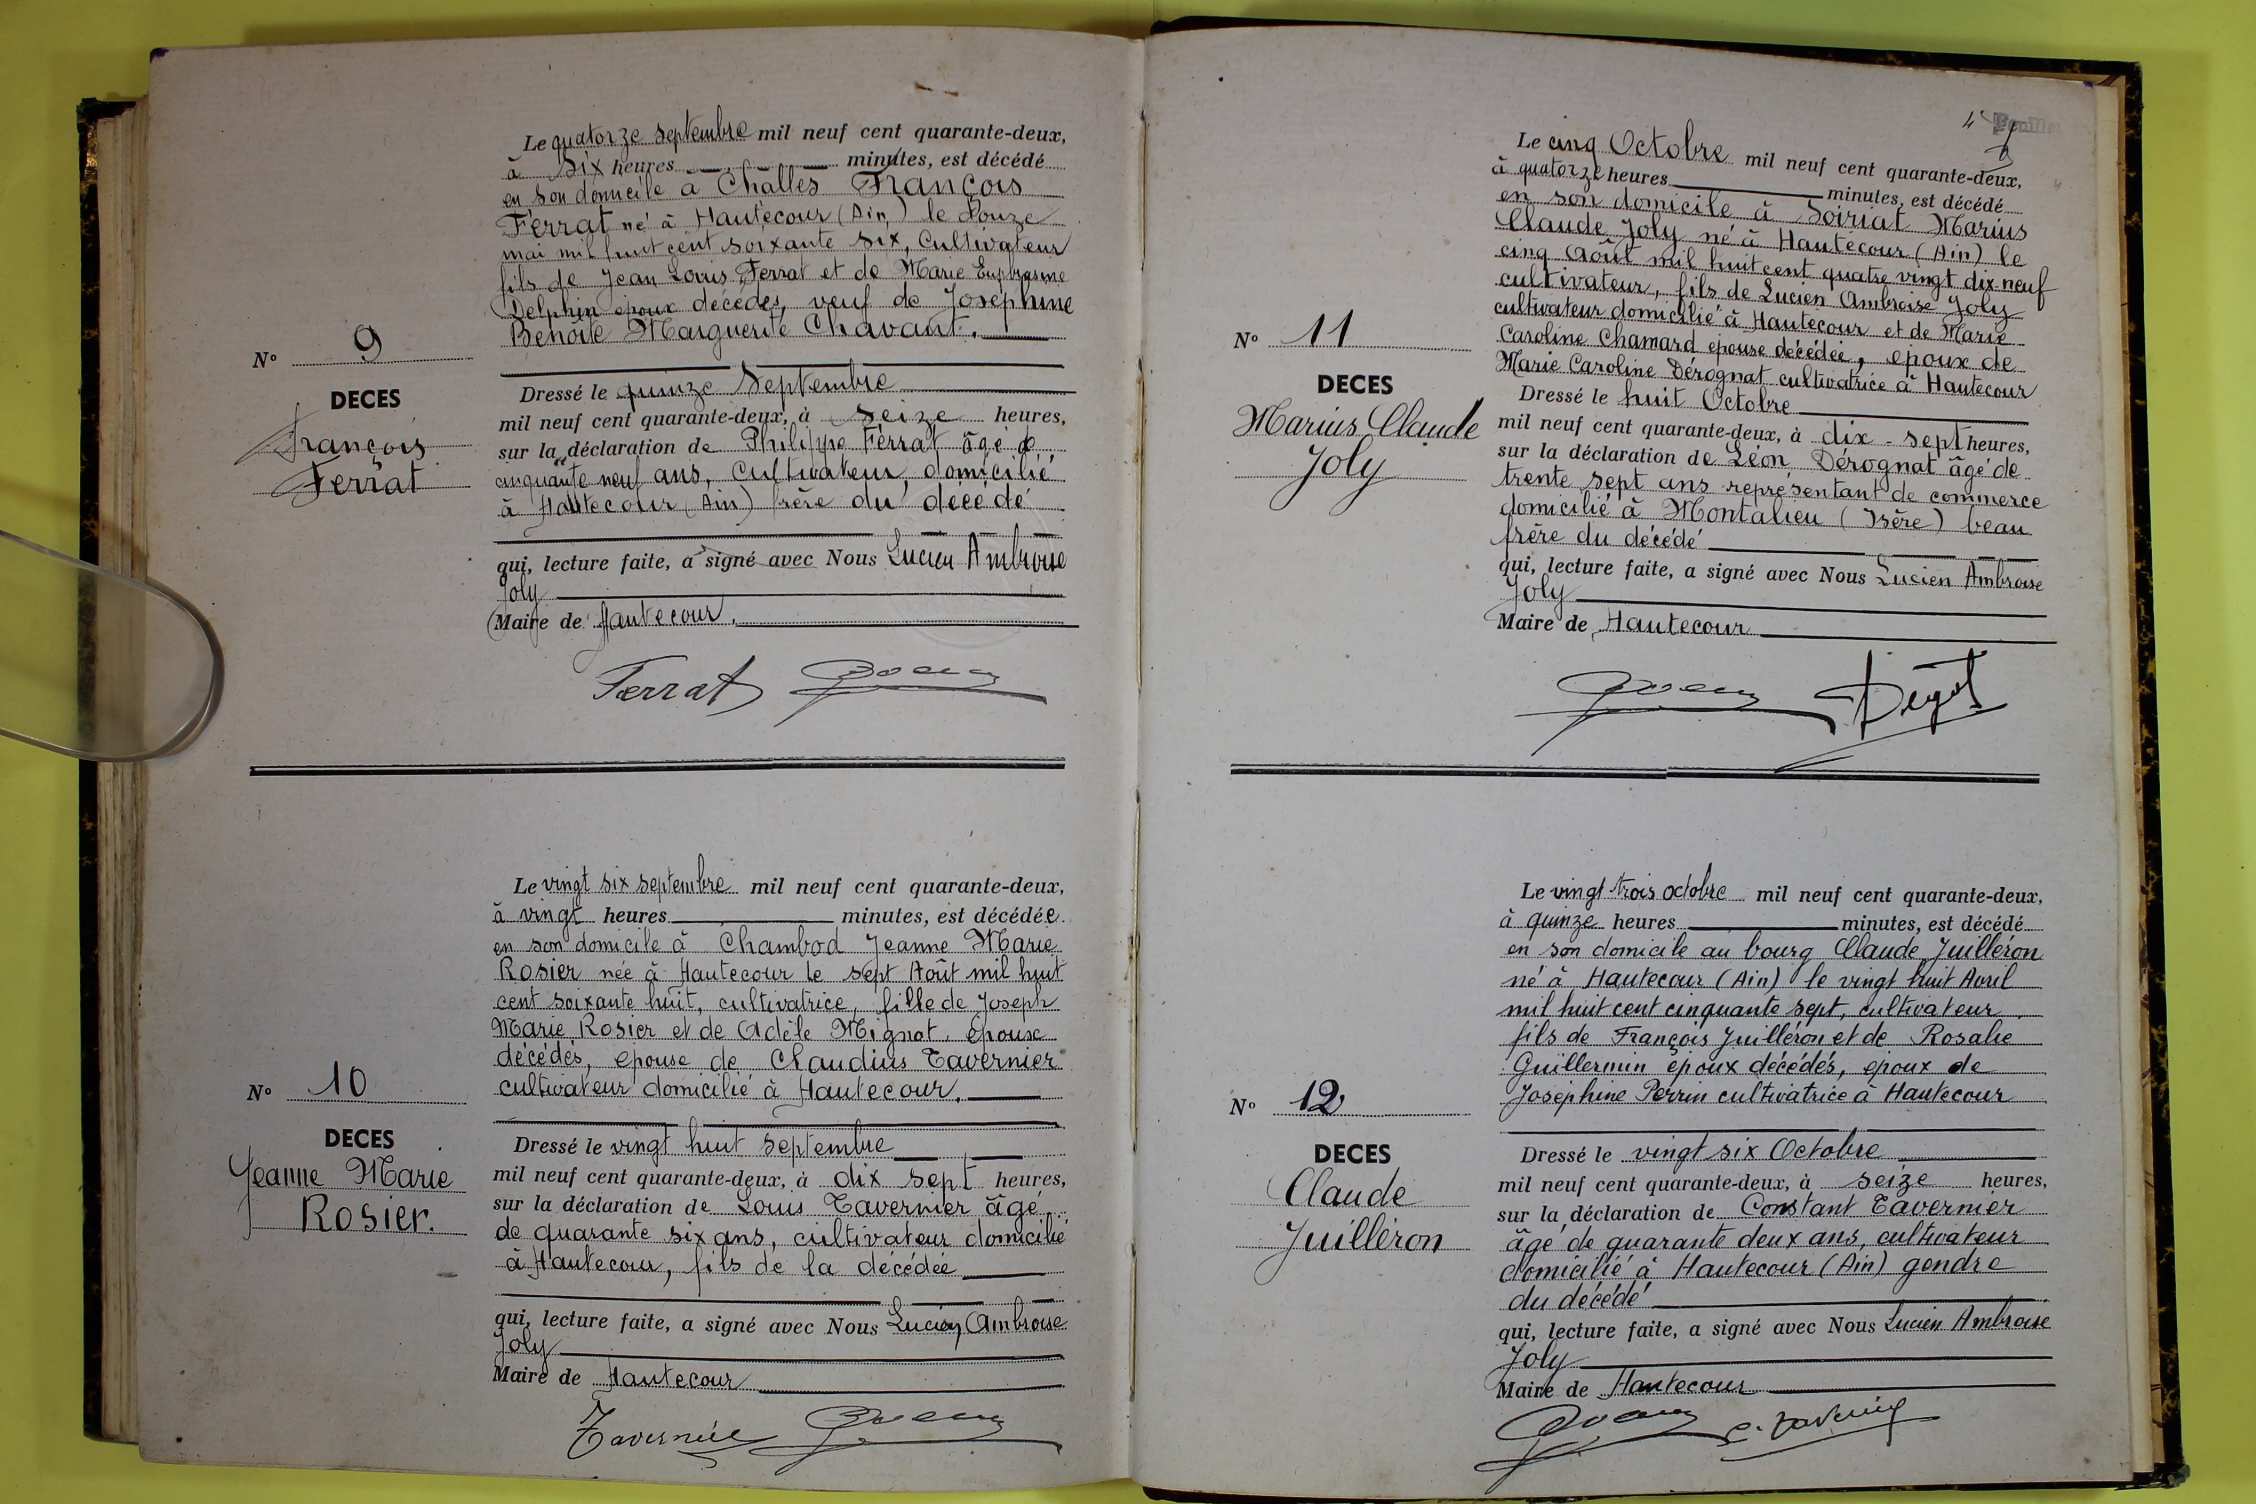 Le quatorze septembre mil neuf cent quarante-deux,
à six heures minutes, est décédé
en son domicile à Challes François
Ferrat né à Hautecour (Ain) le douze
mai mil huit cent soixante six, Cultivateur
fils de Jean Louis Ferrat et de Marie Euphrasine
Delphin époux décédés, veuf de Joséphine
Benoite Marguerite Chavant.
N° 9
DECES
François
Ferrat
Dressé le quinze Septembre
mil neuf cent quarante-deux, à seize heures,
sur la déclaration de Philippe Ferrat âgé de
cinquante neuf ans, Cultivateur, domicilié
à Hautecour (Ain) frère du décédé
qui, lecture faite, a signé avec Nous Lucien Ambroise
Joly
Maire de Hautecour.
Ferrat
Le vingt six septembre mil neuf cent quarante-deux,
à vingt heures minutes, est décédée
en son domicile à Chambod Jeanne Marie
Rosier née à Hautecour le sept Août mil huit
cent soixante huit, cultivatrice, fille de Joseph
Marie Rosier et de Adèle Mignot, époux
décédés, épouse de Claudius Tavernier
cultivateur domicilié à Hautecour.
N° 10
DECES
Jeanne Marie
Rosier.
Dressé le vingt huit septembre
mil neuf cent quarante-deux, à dix sept heures,
sur la déclaration de Louis Tavernier âgé
de quarante six ans, cultivateur domicilié
à Hautecour, fils de la décédée
qui, lecture faite, a signé avec Nous Lucien Ambroise
Joly
Maire de Hautecour
Tavernier
4
Feuillet
Le cinq Octobre mil neuf cent quarante-deux,
à quatorze heures minutes, est décédé
en son domicile à Soiriat Marius
Claude Joly né à Hautecour (Ain) le
cinq Août mil huit cent quatre vingt dix-neuf
cultivateur, fils de Lucien Ambroise Joly
cultivateur domicilié à Hautecour et de Marie
Caroline Chamard épouse décédée, époux de
Marie Caroline Dérognat cultivatrice à Hautecour
N° 11
DECES
Marius Claude
Joly
Dressé le huit Octobre
mil neuf cent quarante-deux, à dix-sept heures,
sur la déclaration de Léon Dérognat âgé de
trente sept ans représentant de commerce
domicilié à Montalieu (Isère) beau
frère du décédé
qui, lecture faite, a signé avec Nous Lucien Ambroise
Joly
Maire de Hautecour
Le vingt trois octobre mil neuf cent quarante-deux,
à quinze heures minutes, est décédé
en son domicile au bourg Claude Juilléron
né à Hautecour (Ain) le vingt huit Avril
mil huit cent cinquante sept, cultivateur
fils de François Juilléron et de Rosalie
Guillermin époux décédés, époux de
Joséphine Perrin cultivatrice à Hautecour
N° 12
DECES
Claude
Juilléron
Dressé le vingt six Octobre
mil neuf cent quarante-deux, à seize heures,
sur la déclaration de Constant Tavernier
âgé de quarante deux ans, cultivateur
domicilié à Hautecour (Ain) gendre
du décédé
qui, lecture faite, a signé avec Nous Lucien Ambroise
Joly
Maire de Hautecour
C. Tavernier